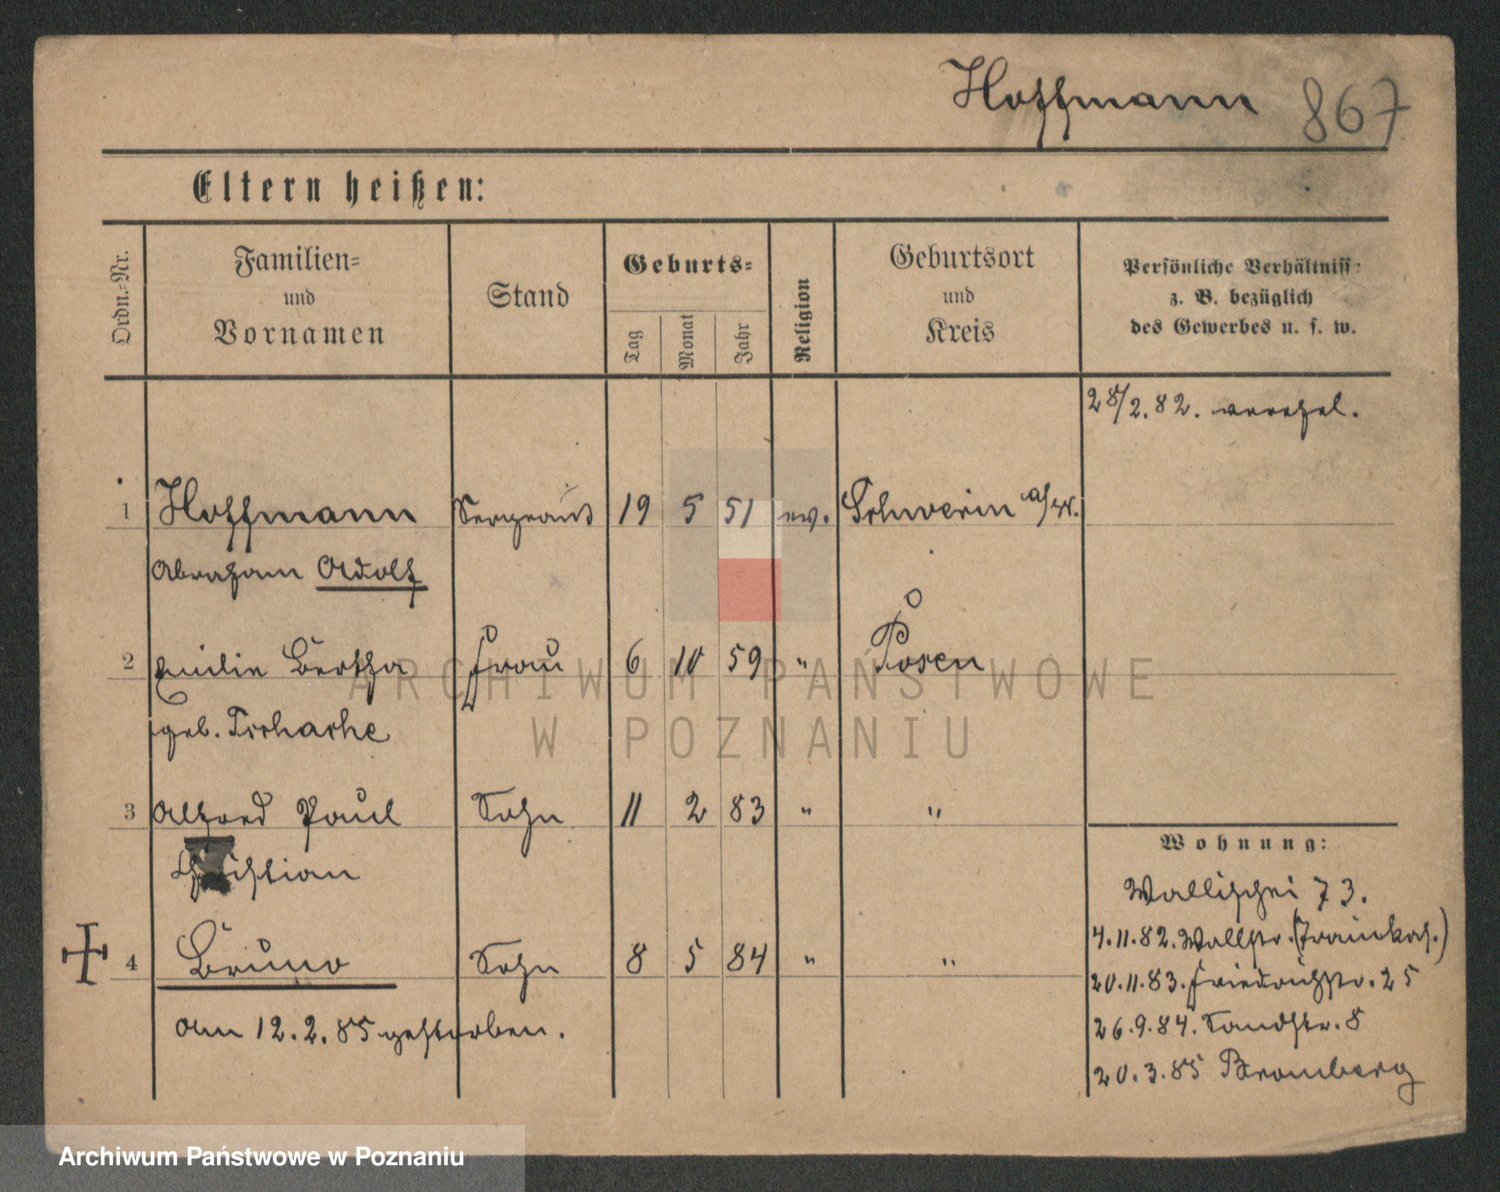 Hoffmann 867
Eltern heißen:
Ordn.-Nr.
Familien-
und
Vornamen
Stand
Geburts-
Tag
Monat
Jahr
Religion
Geburtsort
und
Kreis
Persönliche Verhältniss
z. B. bezüglich
des Gewerbes u. s. w.
28/2.82. verehel.
1 Hoffmann Sergeant 19 5 51 ev. Schwerin a/W.
Abraham Adolf
2 Emilie Bertha Frau 6 10 59 " Posen
geb. Tschache
3 Alfred Paul Sohn 11 2 83 " "
Christian
4 Bruno Sohn 8 5 84 " "
Am 12.2.85 gestorben.
Wohnung:
Wallischei 73.
4.11.82. Wallstr. (Trainkas.)
20.11.83. Friedrichstr. 25
26.9.84. Sandstr. 8
20.3.85 Bromberg
ARCHIWUM PAŃSTWOWE
W POZNANIU
Archiwum Państwowe w Poznaniu